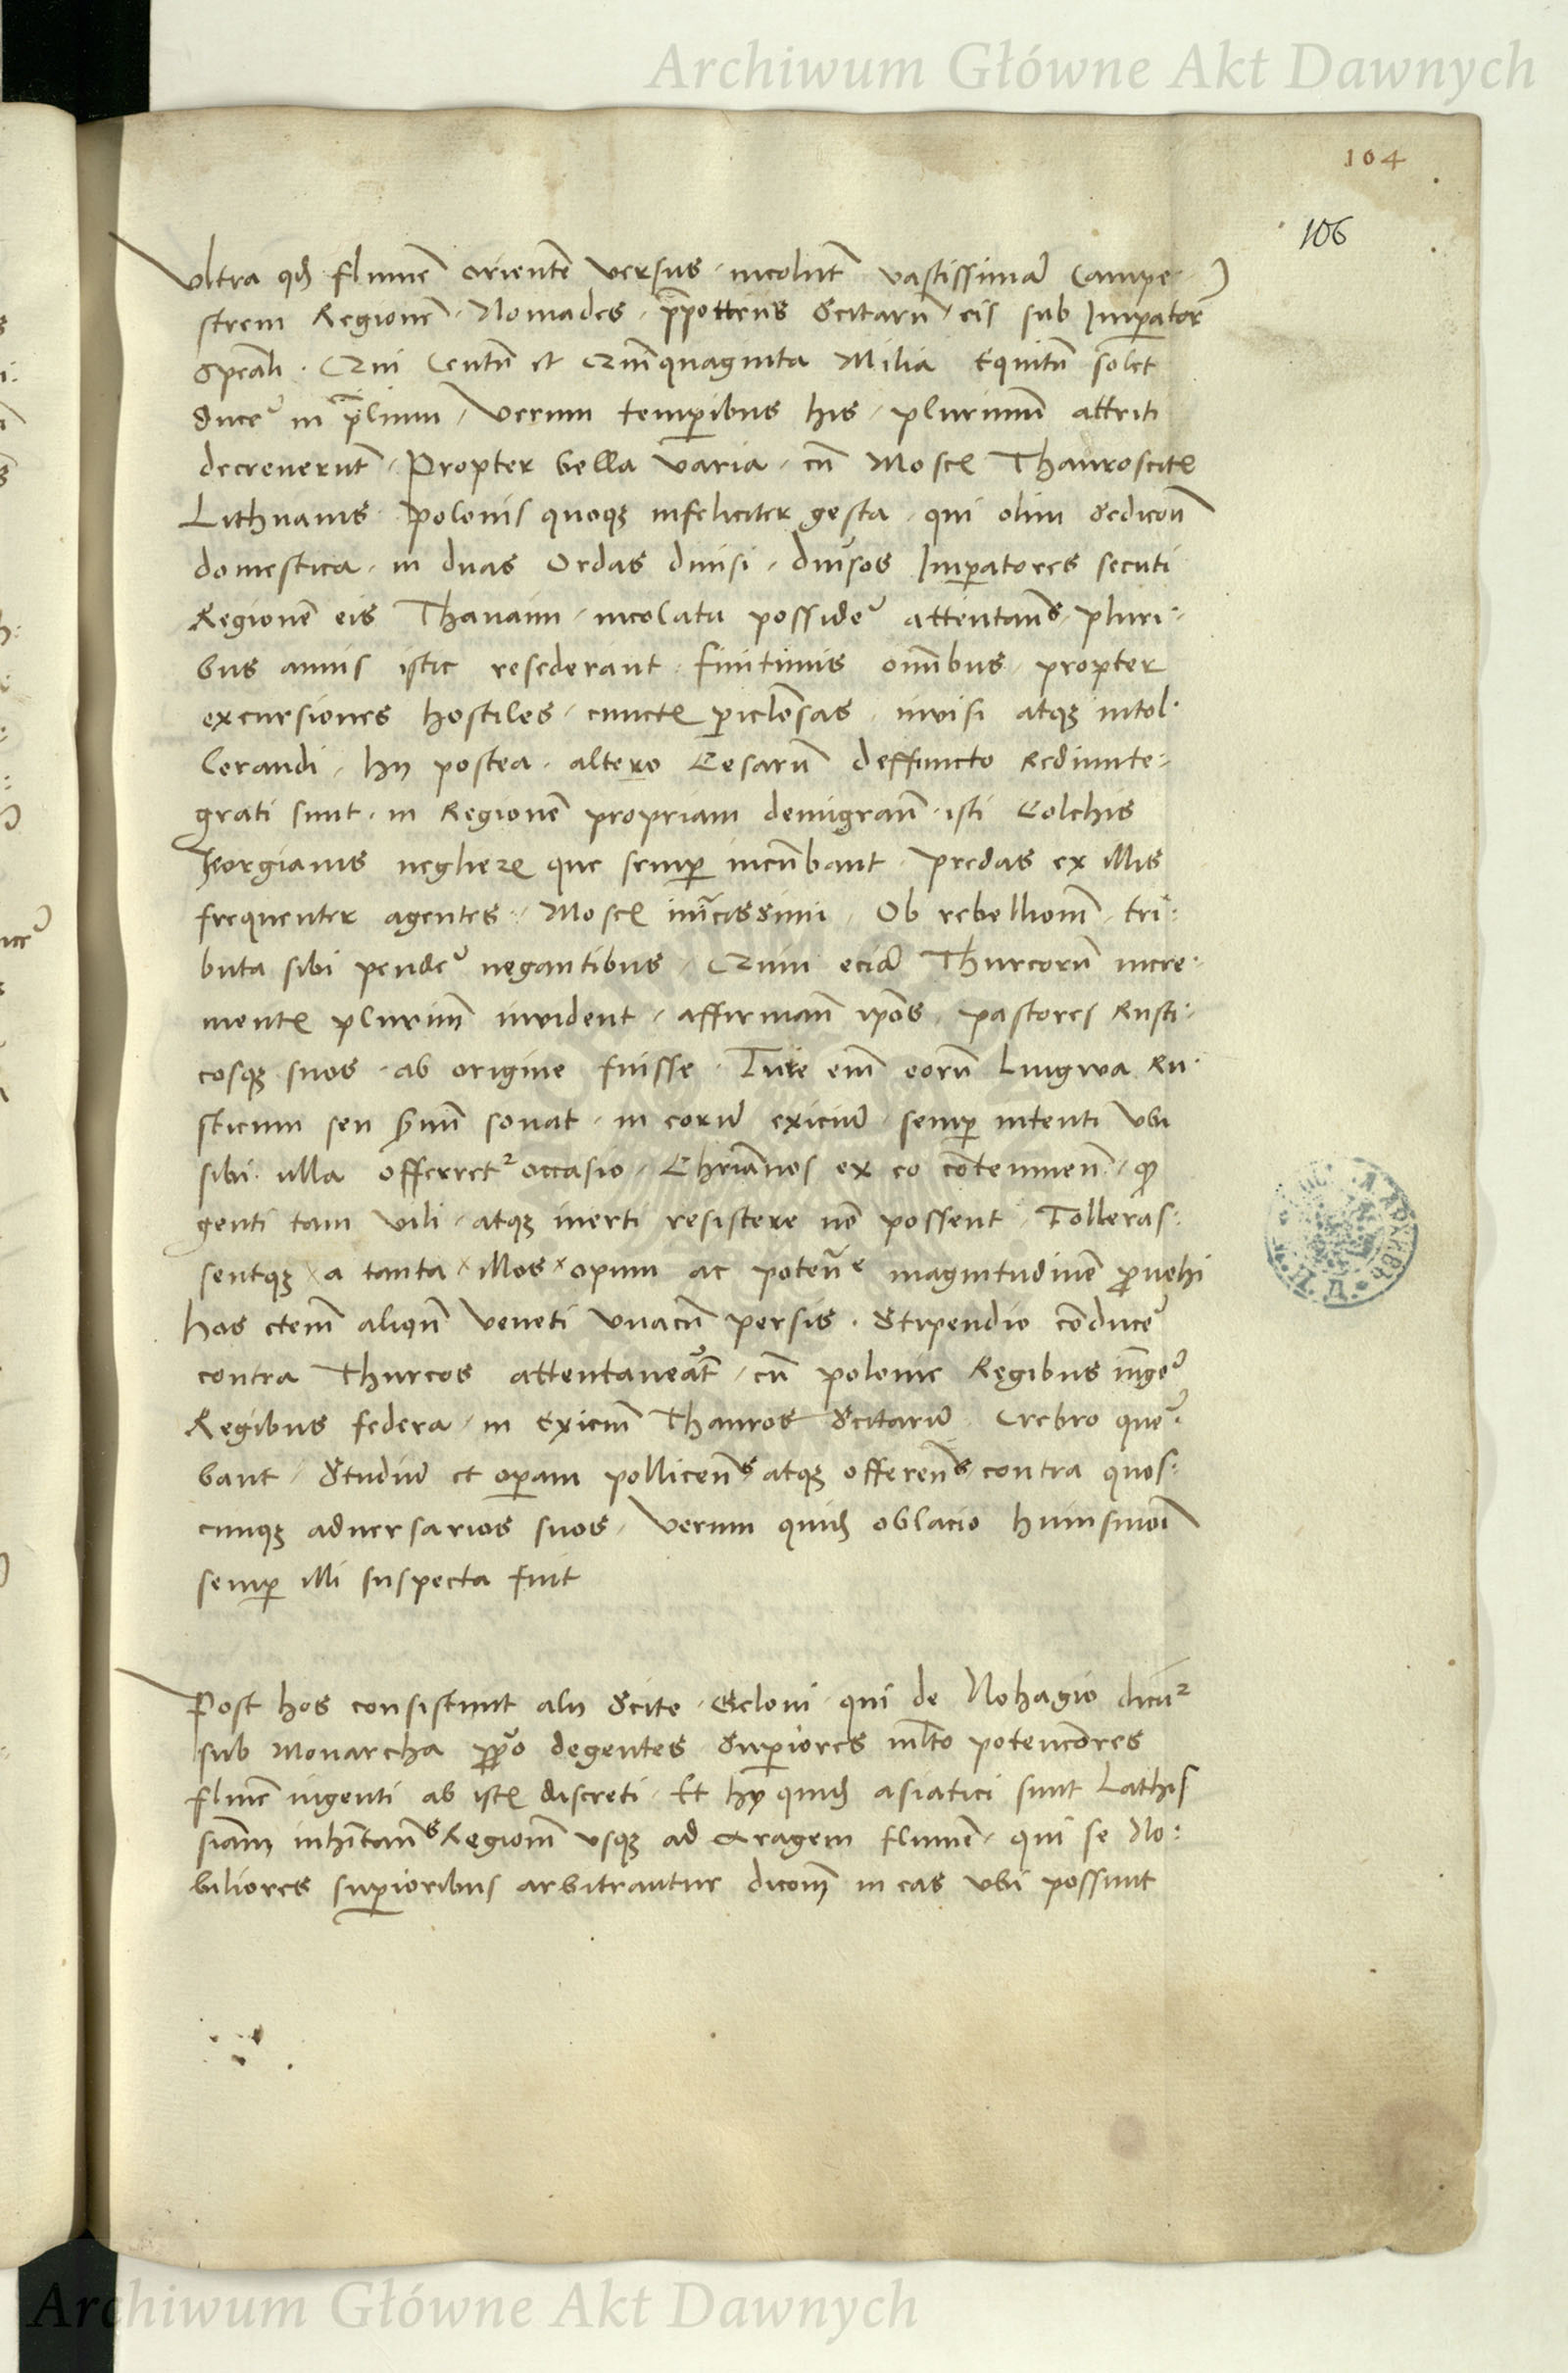 Archiwum Główne Akt Dawnych
104
106
Vltra qd̃ flumẽ orientẽ versus incolũt vastissimã Campe-
strem Regionẽ Nomades p̃pottens Scitarũ cis sub Imp̃ator
Sp̃eali Qui Centũ et Quĩquaginta Milia Equitũ solet
duce in p̃lium Verum temp̃ibus his plurimũ attriti
decreuerũt Propter bella varia cũ Mosc Thauroscit
Lithuanis Polonis quoqȝ infeliciter gesta qui olim sedicoñ
domestica in duas Ordas diuisi diũsos Imp̃atores secuti
Regionẽ cis Thanaim incolatu posside attentañs pluri:
bus annis istic resederant finitimis om̃ibus propter
excursiones hostiles cunct p̃iclõsas inuisi atqȝ intol:
lerandi hij postea altero Cesarũ deffuncto Rediinte:
grati sunt in Regionẽ propriam demigrañ isti Colchis
Georgianis negherz que semp̃ incũbant predas ex illis
frequenter agentes Mosc inĩcissimi Ob rebelliom̃ tri:
buta sibi pende negantibus Quin eciã Thurcorũ incre:
ment plurim̃ inuident affirmañ ip̃os pastores Rusti:
cosqȝ suos ab origine fuisse Ture em̃ eorũ Lingwa Ru:
sticum seu s̃uũ sonat in eorũ exiciũ semp̃ intenti vbi
sibi ulla offerret occasio Chrĩanos ex eo cõtemneñ ꝙ
genti tam vili atqȝ inerti resistere nõ possent Tolleras:
sentqȝ a tanta illos opum ac poteñe magnitudinẽ p̃uehi
hos etem̃ aliqñ Veneti vnacũ persis Stipendio cõduce
contra Thurcos attentaueãt cũ polonie Regibus iũge
Regibus federa in Exiciũ Thauros Scitarũ Crebro que:
bant Studiũ et op̃am polliceñs atqȝ offereñs contra quos:
cunqȝ aduersarios suos Verum quid̃ oblacio huiusmoĩ
semp̃ illi suspecta fuit
Post hos consistunt alij Scite Geloni qui de Nohagio dicũ
sub Monarcha p̃p̃o degentes Sup̃iores ml̃to potencõres
flumẽ ingenti ab ist discreti Et hij quid̃ asiatici sunt Lathis
siam̃ inhĩtañs Regiom̃ vsqȝ ad Aragem flumẽ qui se No:
biliores sup̃ioribus arbitrantur dicom̃ in eas vbi possunt
Archiwum Główne Akt Dawnych